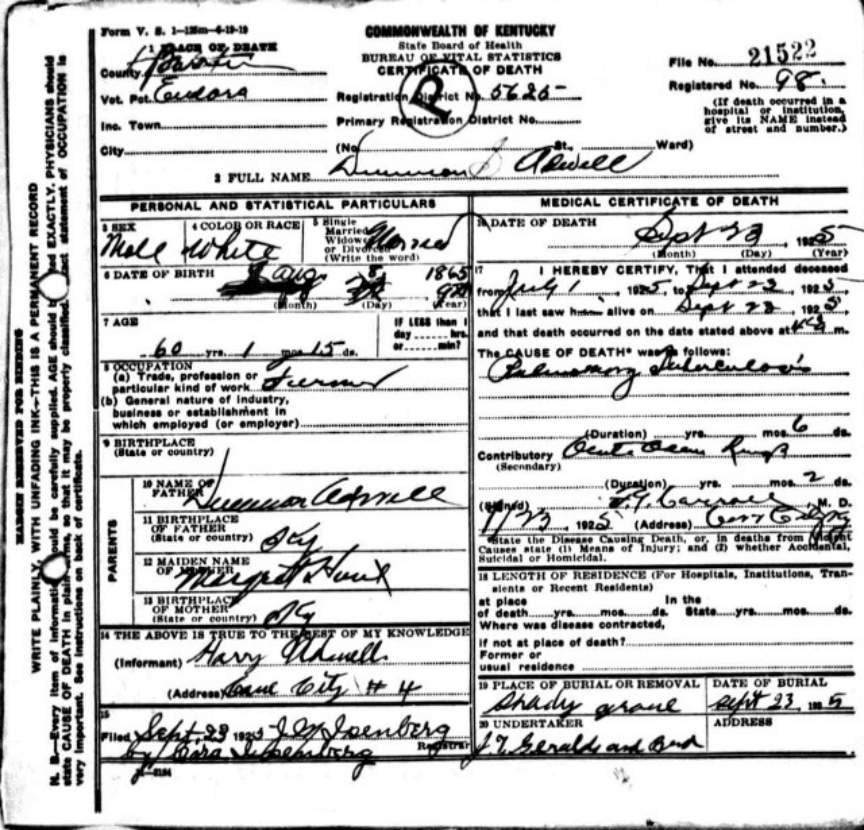 Form V. S. 1—125m—6-19-19
COMMONWEALTH OF KENTUCKY
State Board of Health
BUREAU OF VITAL STATISTICS
CERTIFICATE OF DEATH
1 PLACE OF DEATH
County
Vot. Pct. Eudora
Inc. Town
City
Registration District No. 5625
Primary Registration District No.
(No. St., Ward)
File No. 21522
Registered No. 98.
(If death occurred in a hospital or institution, give its NAME instead of street and number.)
2 FULL NAME Adwell
PERSONAL AND STATISTICAL PARTICULARS
3 SEX
Male
4 COLOR OR RACE
White
5 Single
Married
Widowed
or Divorced
(Write the word)
Married
6 DATE OF BIRTH
Aug 8 1865
(Month) (Day) (Year)
7 AGE
60 yrs. 1 mos. 15 ds.
IF LESS than 1
day hrs.
or min?
8 OCCUPATION
(a) Trade, profession or
particular kind of work Farmer
(b) General nature of industry,
business or establishment in
which employed (or employer)
9 BIRTHPLACE
(State or country)
PARENTS
10 NAME OF
FATHER Adwell
11 BIRTHPLACE
OF FATHER
(State or country) Ky
12 MAIDEN NAME
OF MOTHER Margret
13 BIRTHPLACE
OF MOTHER
(State or country) Ky
14 THE ABOVE IS TRUE TO THE BEST OF MY KNOWLEDGE
(Informant) Harry Adwell
(Address) Cave City # 4
15
Filed Sept. 23 1925 J. W. Isenberg
by Cora Isenberg Registrar
MEDICAL CERTIFICATE OF DEATH
16 DATE OF DEATH
Sept 23, 1925
(Month) (Day) (Year)
17 I HEREBY CERTIFY, That I attended deceased
from July 1, 1925, to Sept 23, 1925
that I last saw h alive on Sept 23, 1925
and that death occurred on the date stated above at m.
The CAUSE OF DEATH* was as follows:
Pulmonary Tuberculosis
(Duration) yrs. mos. 6 ds.
Contributory
(Secondary)
(Duration) yrs. mos. 2 ds.
(Signed) Carroll, M. D.
23, 1925 (Address) Cave City Ky
*State the Disease Causing Death, or, in deaths from Violent
Causes state (1) Means of Injury; and (2) whether Accidental,
Suicidal or Homicidal.
18 LENGTH OF RESIDENCE (For Hospitals, Institutions, Transients or Recent Residents)
at place In the
of death yrs. mos. ds. State yrs. mos. ds.
Where was disease contracted,
if not at place of death?
Former or
usual residence
19 PLACE OF BURIAL OR REMOVAL
Shady grove
DATE OF BURIAL
Sept 23, 1925
20 UNDERTAKER
J. T. Geralds and
ADDRESS
MARGIN RESERVED FOR BINDING
WRITE PLAINLY, WITH UNFADING INK—THIS IS A PERMANENT RECORD
N. B.—Every item of information should be carefully supplied. AGE should be stated EXACTLY. PHYSICIANS should
state CAUSE OF DEATH in plain terms, so that it may be properly classified. Exact statement of OCCUPATION is
very important. See instructions on back of certificate.